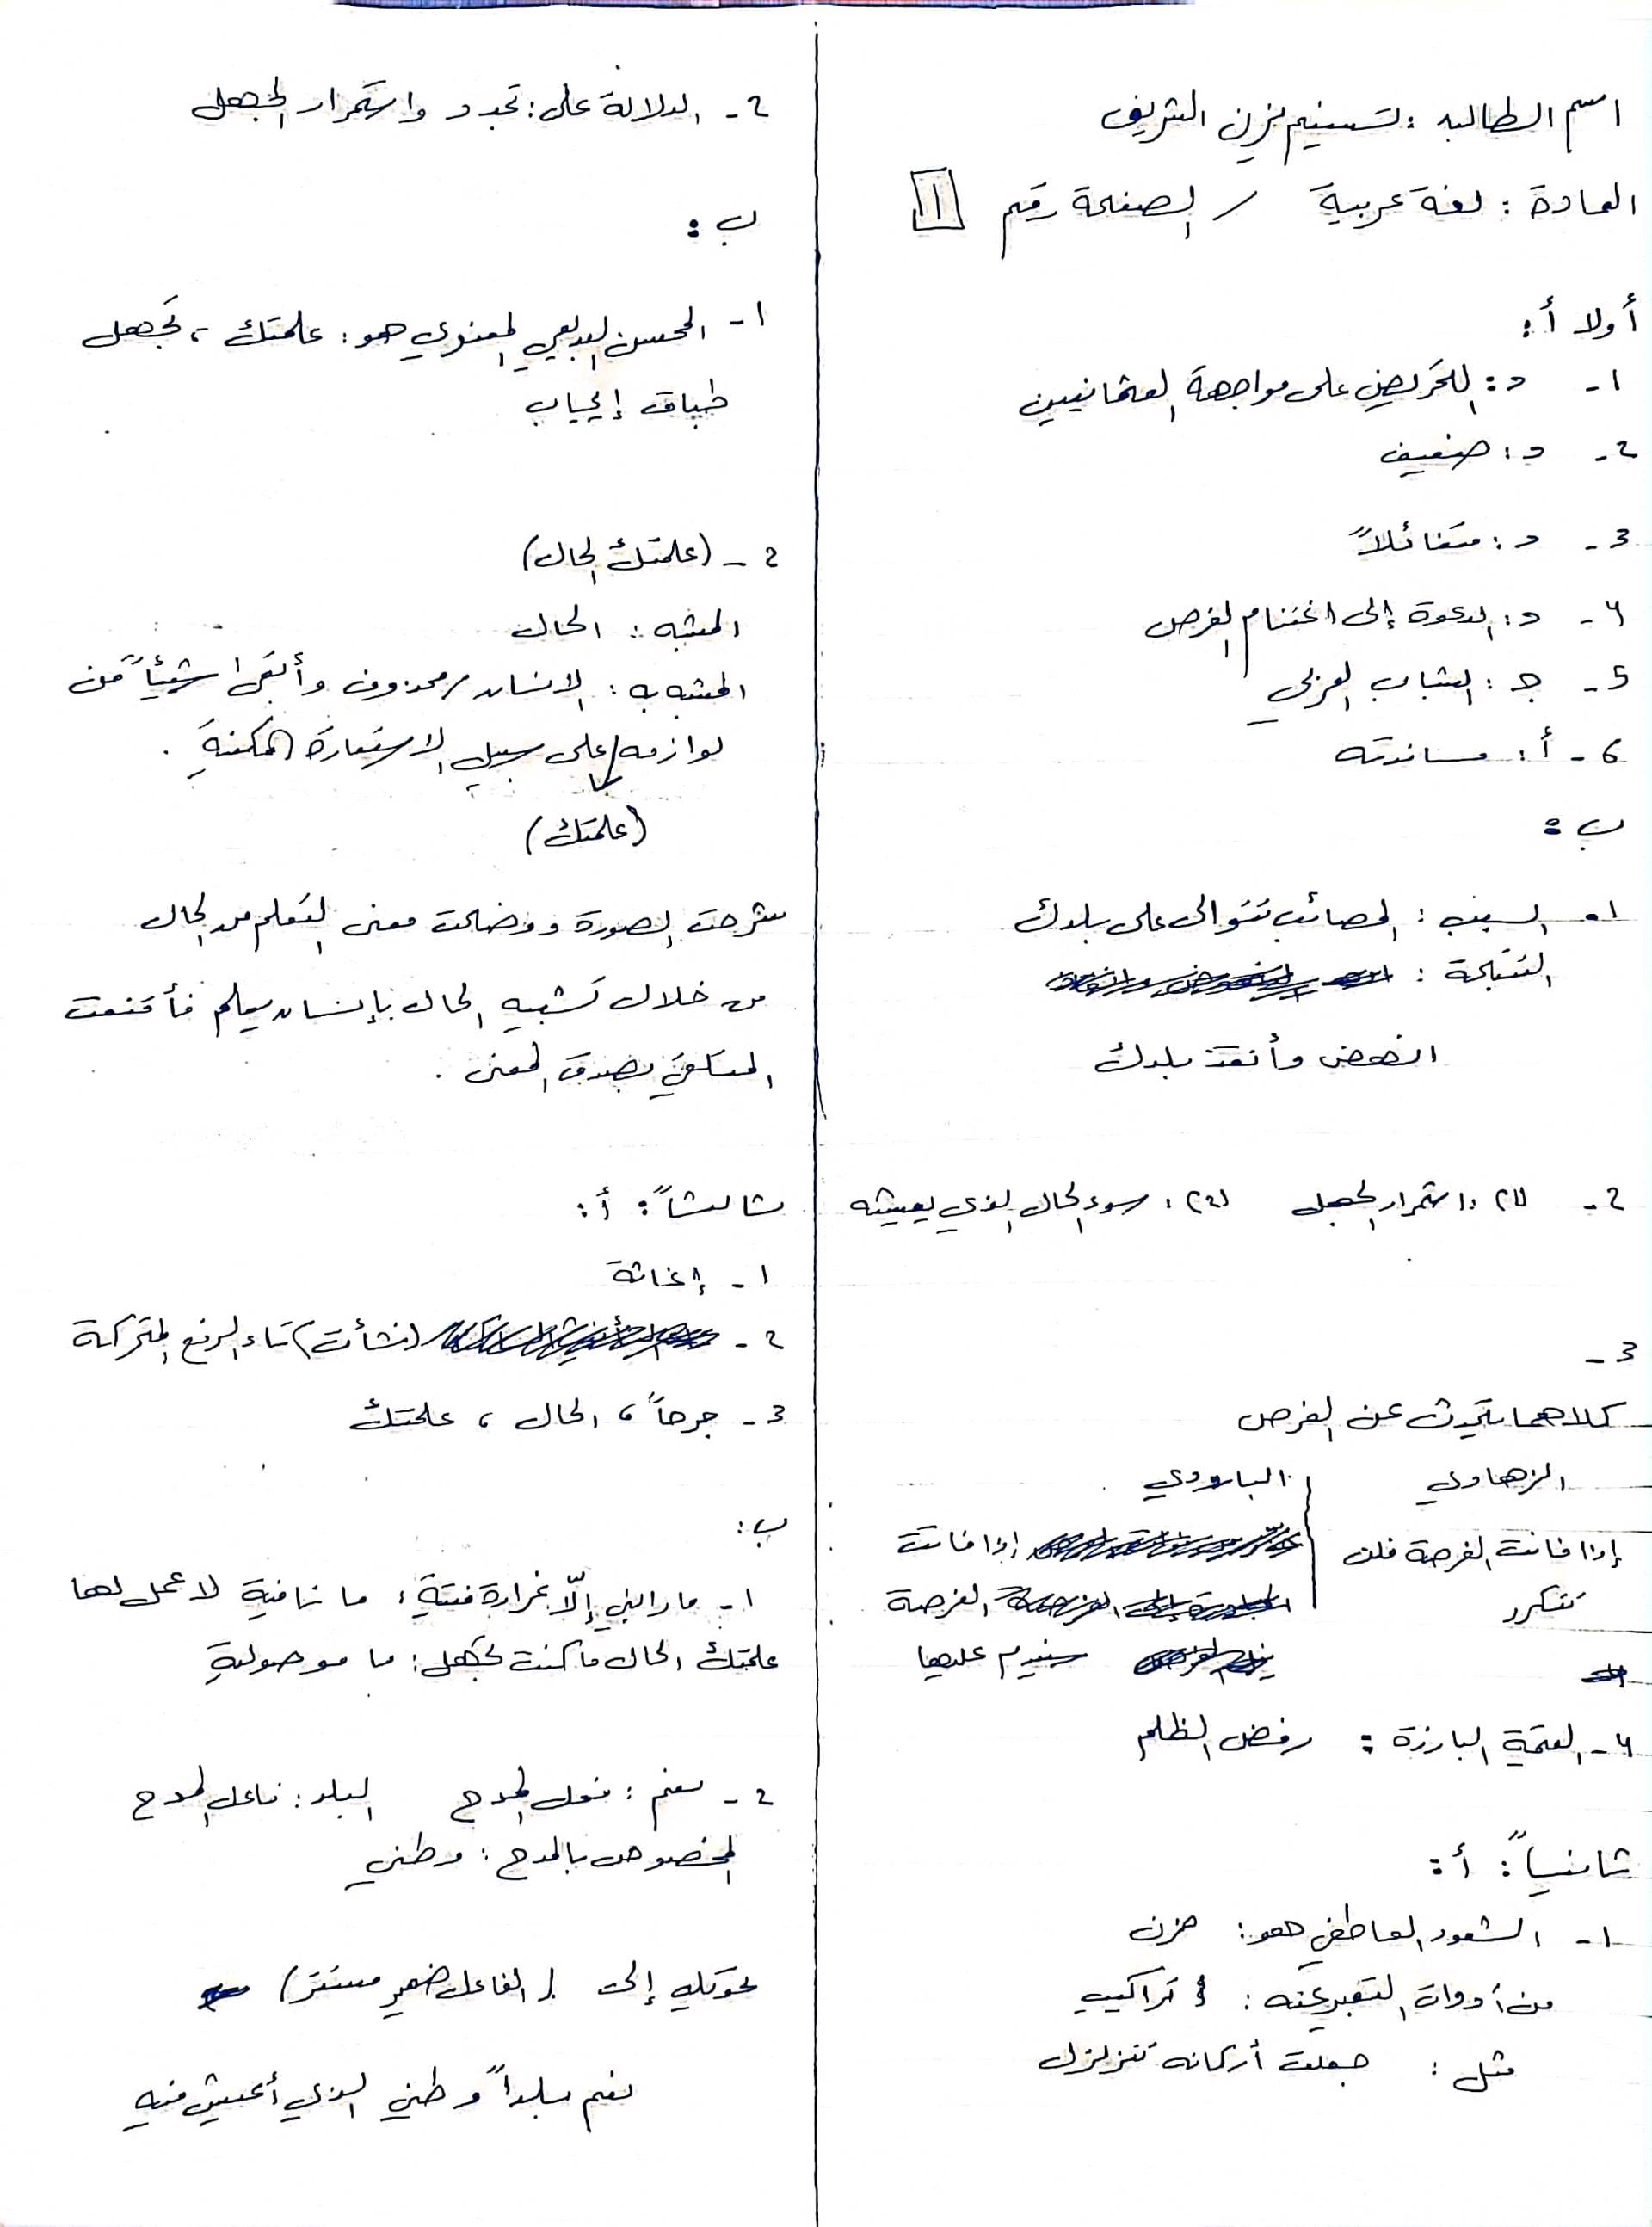 اسم الطالبة : تسنيم نزين الشريف
المادة : لغة عربية / الصفحة رقم 1
أولا أ :
1- د : للتحريض على مواجهة العثمانيين
2- د : ضعيف
3- د : متفائلاً
4- د : الدعوة إلى اغتنام الفرص
5- ج : الشباب العربي
6- أ : مساندته
ب :
1- السبب : المصائب تتوالى على بلدك
النتيجة :
انهض وأنقذ بلدك
2- (1) : استمرار الجهل (2) : سوء الحال الذي يعيشه
3-
كلاهما يتحدث عن الفرص
الزهاوي
البارودي
إذا فاتت الفرصة فلن
تتكرر
إذا فاتت
الفرصة
سيندم عليها
4- القيمة البارزة : رفض الظلم
ثانياً : أ :
1- الشعور العاطفي هو : حزن
من أدوات التعبير عنه : تراكيب
مثل : جعلت أركانه تتزلزل
2- الدلالة على : تجدد واستمرار الجهل
ب :
1- المحسن البديعي المعنوي هو : علمتك ، تجهل
طباق إيجاب
2- (علمتك الحال)
المشبه : الحال
المشبه به : الانسان / محذوف وأبقى شيئاً من
لوازمه / على سبيل الاستعارة المكنية .
(علمتك)
شرحت الصورة ووضحت معنى التعلم من الحال
من خلال تشبيه الحال بإنسان يعلم فأقنعت
المتلقي بصدق المعنى .
ثالثاً : أ :
1- إغاثة
2- (نشأت) تاء الرفع المتحركة
3- جرحاً ، الحال ، علمتك
ب :
1- ما رابني إلّا غرارة فتية : ما نافية لا عمل لها
علمتك الحال ما كنت تجهل : ما موصولية
2- نعم : فعل المدح البلد : فاعل المدح
المخصوص بالمدح : وطني
تحويله إلى (الفاعل ضمير مستتر)
نعم بلداً وطني الذي أعيش فيه